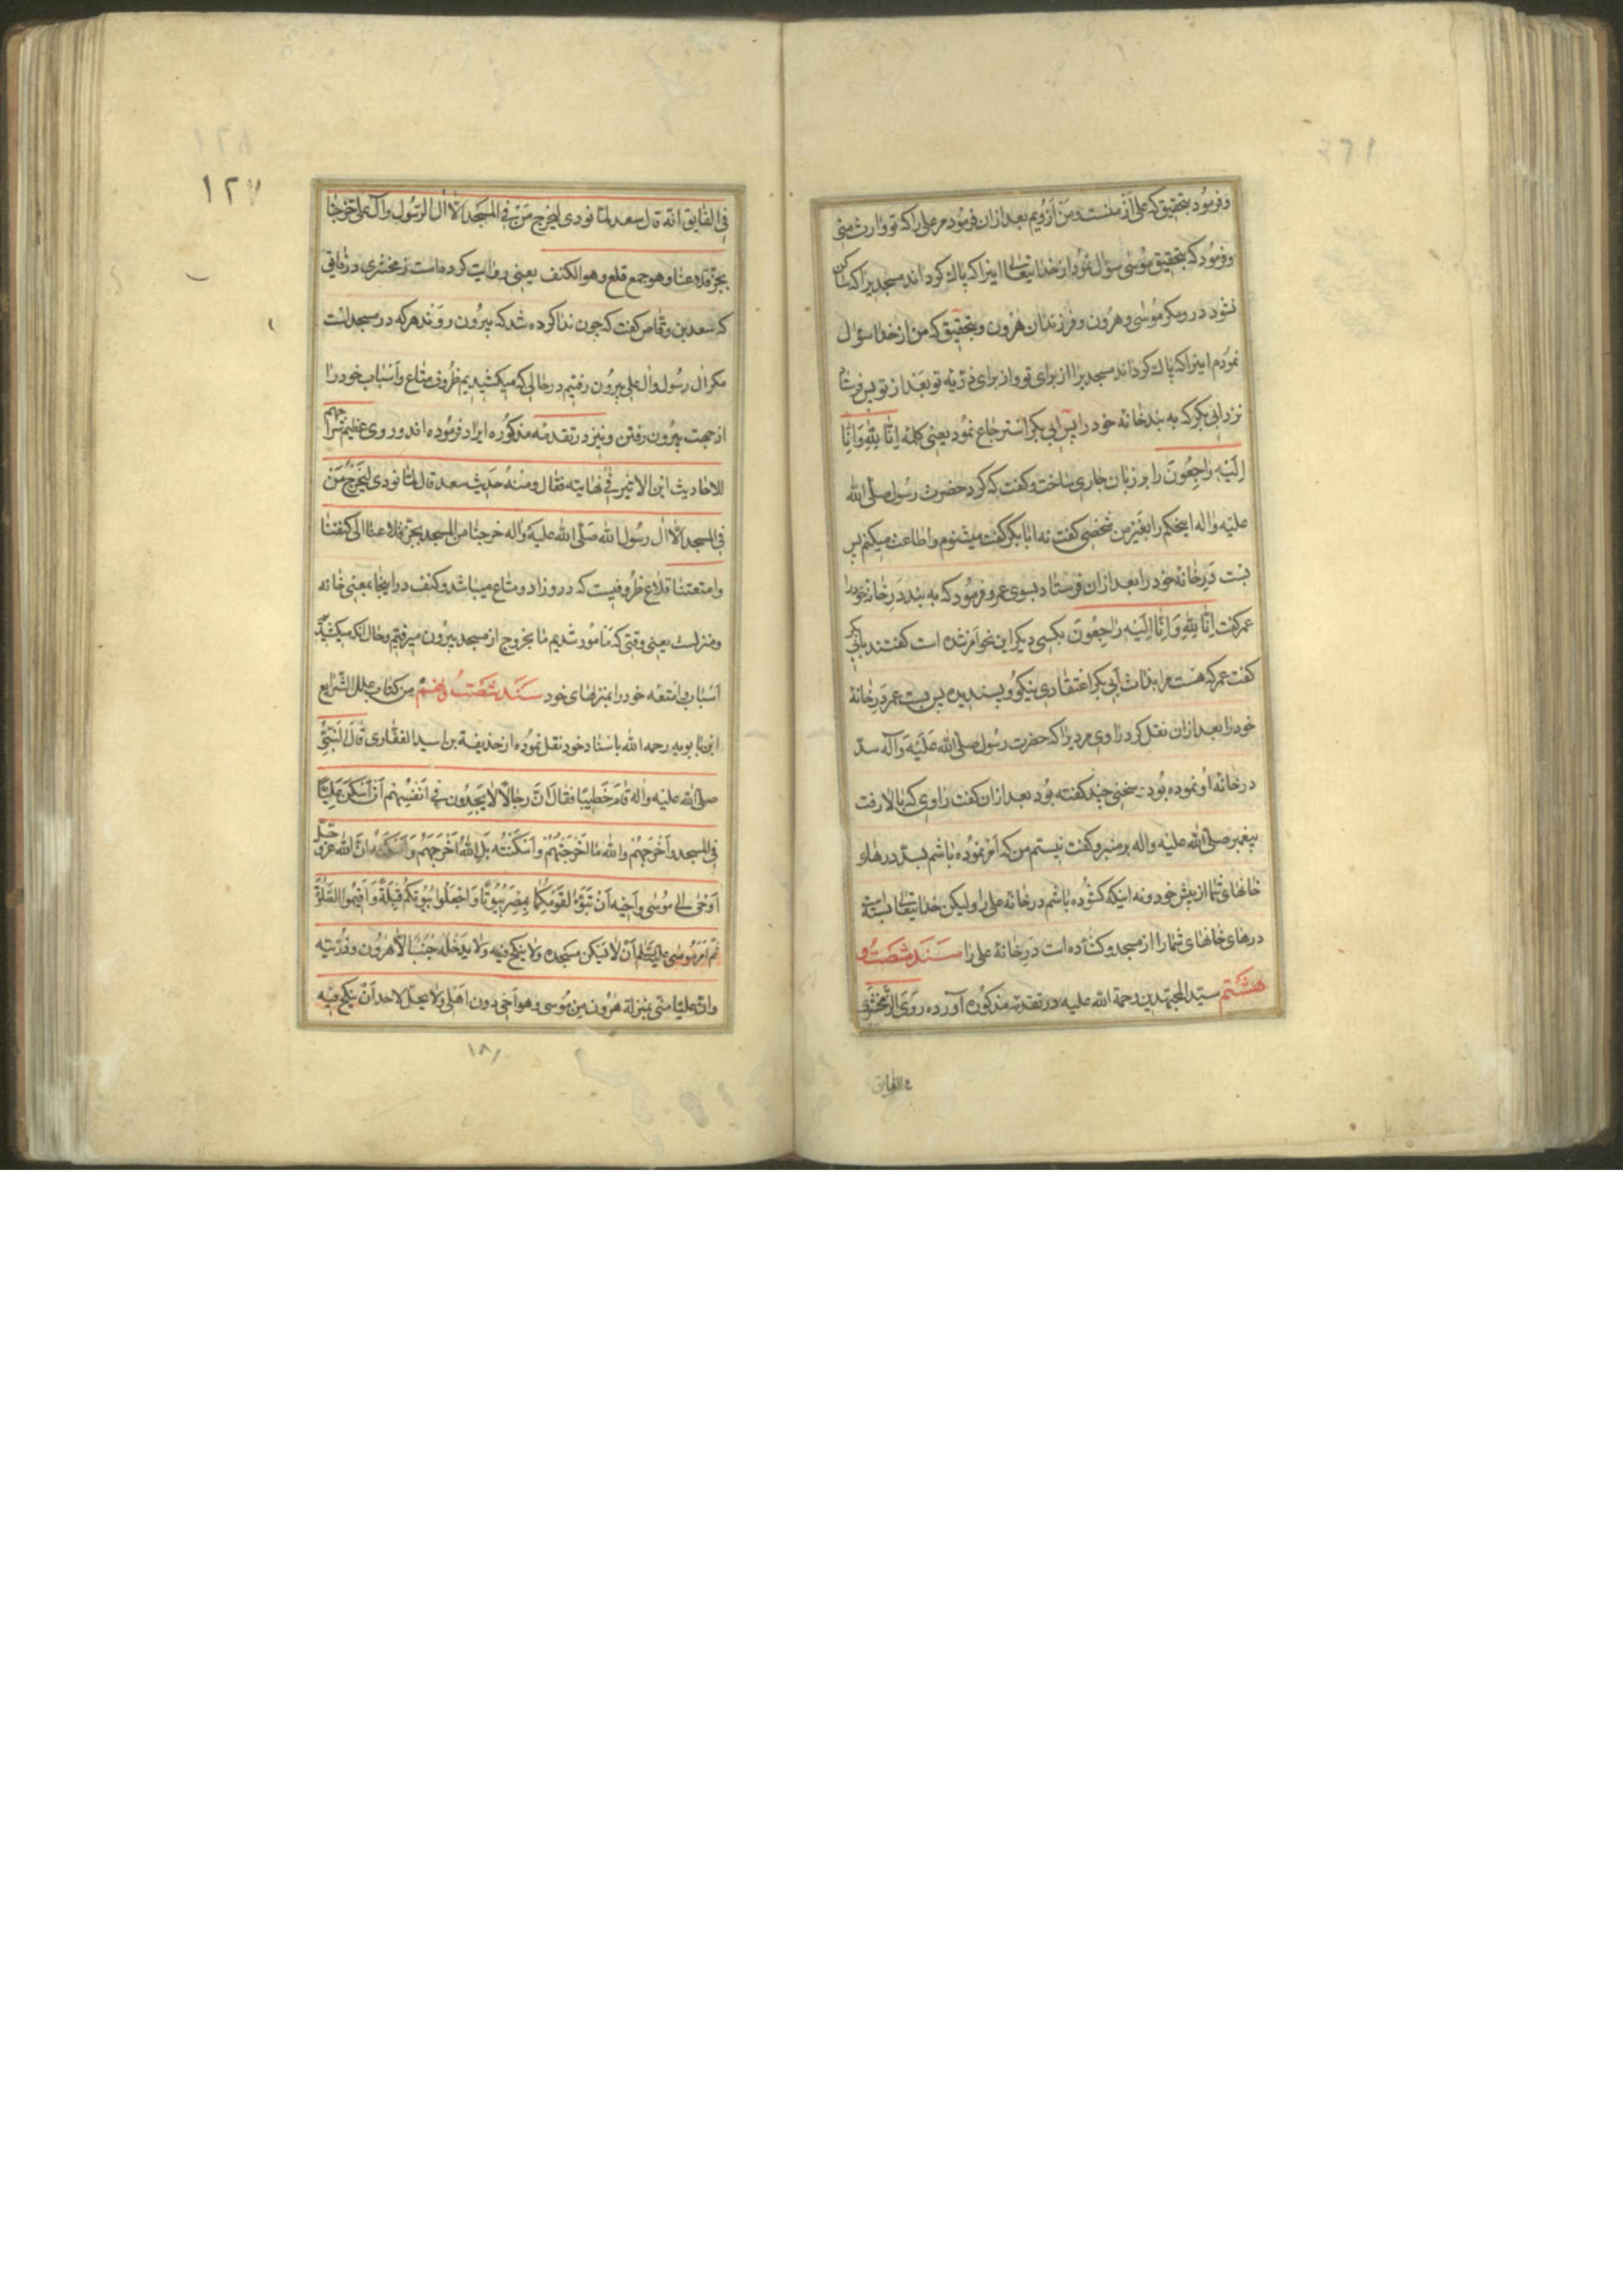 وفرمود بتحقیق که علی از منست و من از ویم بعد از ان فرمود مر علی را که تو وارث منی
وفرمود که بتحقیق موسی سؤال نمود از خدایتعالی اینرا که پاک کرداند مسجدیرا که ساکن
نشود در و مکر موسی و هرون و فرزندان هرون و بتحقیق که من از خدا سؤال
نمودم اینرا که پاک کرداند مسجد برا از برای تو و از برای ذریه تو بعد از تو پس فرستاد
نزد ابی بکر که به بند خانه خود را پس ابی بکر استرجاع نمود یعنی کلمه اِنّا لِلّهِ وَاِنّا
اِلَیْهِ راجِعُونَ را بر زبان جاری ساخت وکفت که کرد حضرت رسول صلّی الله
علیه واله اینحکم را بغیر من شخصی کفت نه ابا بکر کفت میشنوم و اطاعت میکنم پس
بست دَرِ خانه خود را بعد از ان فرستاد بسوی عمر و فرمود که به بند دَرِ خانه خود را
عمر کفت اِنّا لِلّهِ وَاِنّا اِلَیْهِ راجِعُونَ بکسی دیکر این نحو اَمر شده است کفتند بابی بکر
کفت عمر که هست مرا بذات اَبی بکر اعتقادی نیکو و پسندیده پس بست عمر دَرِ خانهٔ
خود را بعد از ان نقل کرد راوی مردیرا که حضرت رسول صلّی الله عَلَیْهِ وَآله سدّ
در خانه او نموده بود سخنی چند کفته بود بعد از ان کفت راوی که بالا رفت
پیغمبر صلّی الله علیه واله بر منبر و کفت نیستم من که اَمر نموده باشم بسدّ درهاء
خانهای شما از پیش خود و نه اینکه کشوده باشم در خانه علی را ولیکن خدایتعالی بسته است
درهای خانهای شما را از مسجد و کشاده است دَرِ خانهٔ علی را سَنَد شصت و
هشتم سیّد المجتهدین رحمة الله علیه در تقدمه مذکوره آورده رَوَی الزّمخشری
فی الفایق
۱۲۷
فی الفایق انّه قال سعد لمّا نودی لیخرج مَنْ فی المسجد الّا آل الرّسول وآل علی خرجنا
بجرّ قلاعنا و هو جمع قلع و هو الکنف یعنی روایت کرده است زمخشری در فایق
که سعد بن وقّاص کفت که چون ندا کرده شد که بیرون روند هر که در مسجد است
مکر ال رسول وال علی بیرون رفتیم در حالی که میکشیدیم ظروف متاع و اَسباب خود را
از جهت بیرون رفتن و نیز در تقدمه مذکوره ایراد فرموده اند و روی
للاحادیث ابن الاثیر فی نهایته فقال ومنه حدیث سعد قال لمّا نودی لیخرج مَنْ
فی المسجد الّا ال رسول الله صَلّی الله علیه واله خرجنا من المسجد بجرّ قلاعنا ای کنفنا
وامتعتنا قلاع ظروفیست که در و زاد و متاع میباشد و کنف در اینجا بمعنی خانه
ومنزلست یعنی وقتی که مامور شدیم ما بخروج از مسجد بیرون میرفتیم وحال انکه میکشیدیم
اَسباب وامتعه خود را بمنزلهای خود سَنَد شصت و نهم من کتاب علل الشّرایع
ابن بابویه رحمه الله باسناد خود نقل نموده از حذیفة بن اسید الغفّاری قالَ النَّبیّ
صلّی الله علیه واله قامَ خَطیبًا فقالَ انّ رجالًا لا یجِدُون فی اَنفسِهِم اَن اَسکن عَلیًّا
فی المسجد واُخرجَهُم والله ما اَخرَجتُهُم واَسکنتُه بَلِ اللهُ اَخرَجَهُم وَاَسکنَهُ انَّ الله عزّ وجلّ
اَوحی الی مُوسی واَخیه اَنْ تَبَوّءا لِقَومِکُما بِمِصْرَ بُیُوتًا وَاجْعَلُوا بُیُوتَکُم قِبلَةً وَاَقِیمُوا الصَّلوةَ
ثمّ اَمَرَ مُوسی علیه السّلم اَنْ لا یَسکن مسجده ولا ینکح فیه ولا یدخُلَه جُنُبٌ الّا هرون وذُرّیته
وانّ علیّا منّی بمنزلة هرون مِن مُوسی وهو اَخی دون اَهلی ولا یحلّ لاحد اَنْ ینکح فیه
۱۸۱